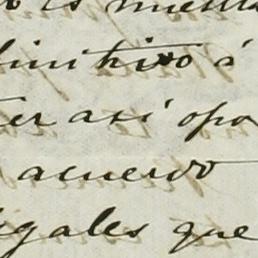 es
finitivo á
er así opo
acuerdo
gales que